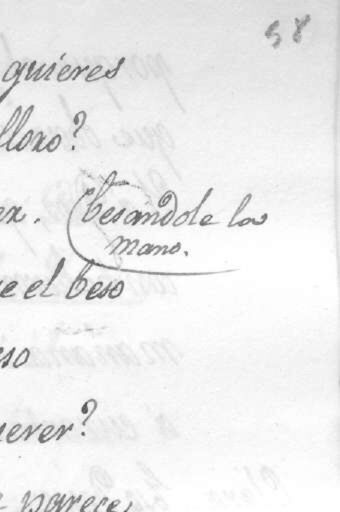 58
quieres
lloro?
er. (besandole la
mano.
e el beso
eso
uerer?
e parece